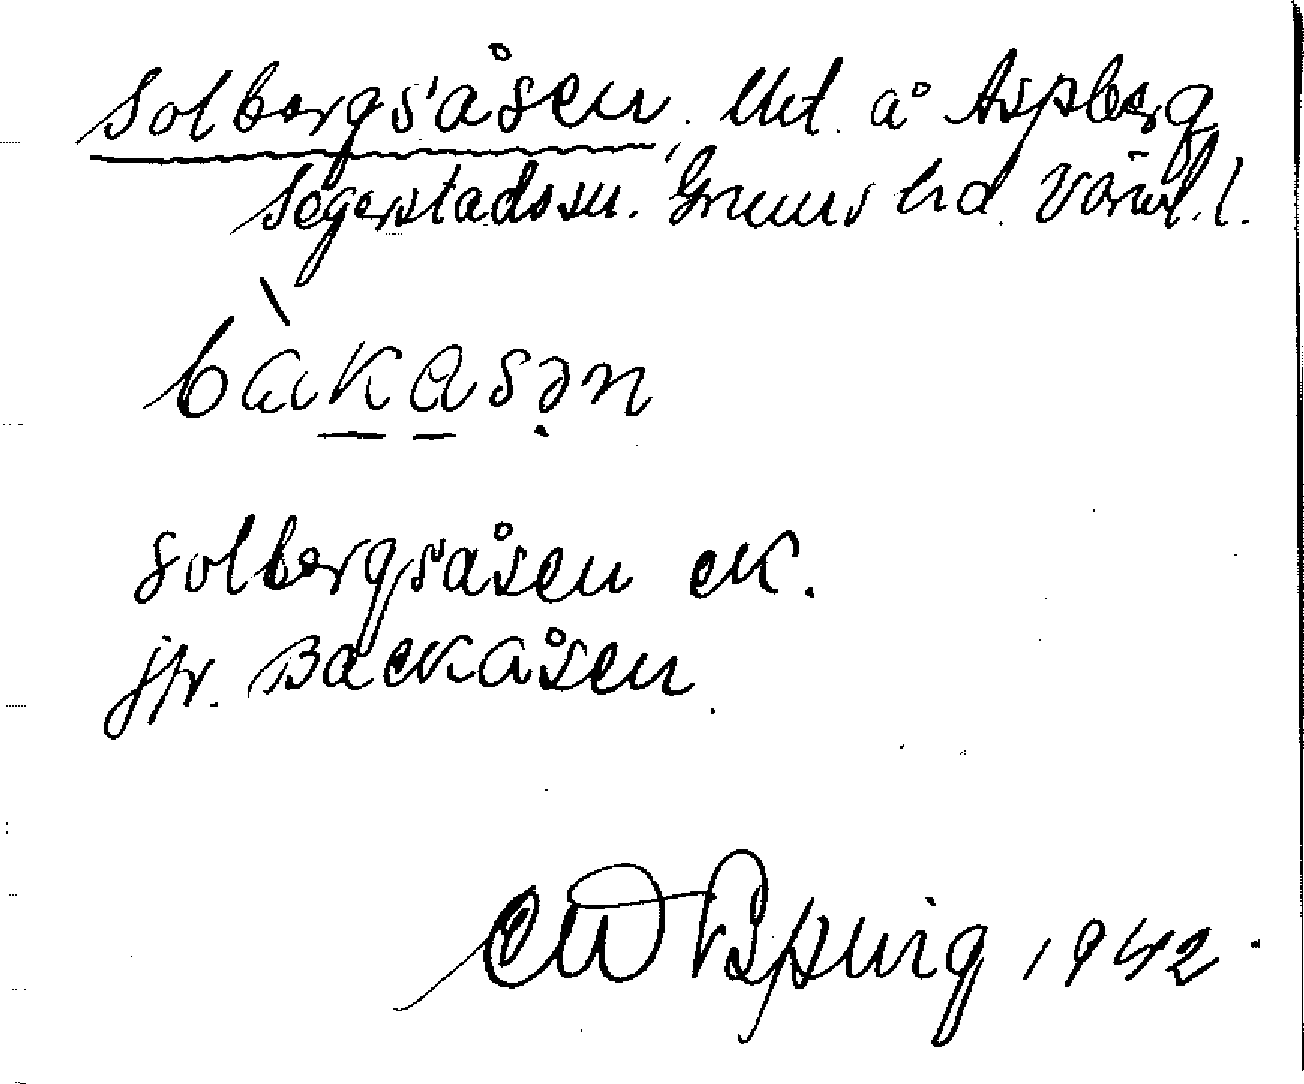 Solbergsåsen. Utl. å Aspberg,
Segerstads sn. Grums hd. Värml. l.
bàkasən
Solbergsåsen ek.
jfr. Backåsen.
1942.